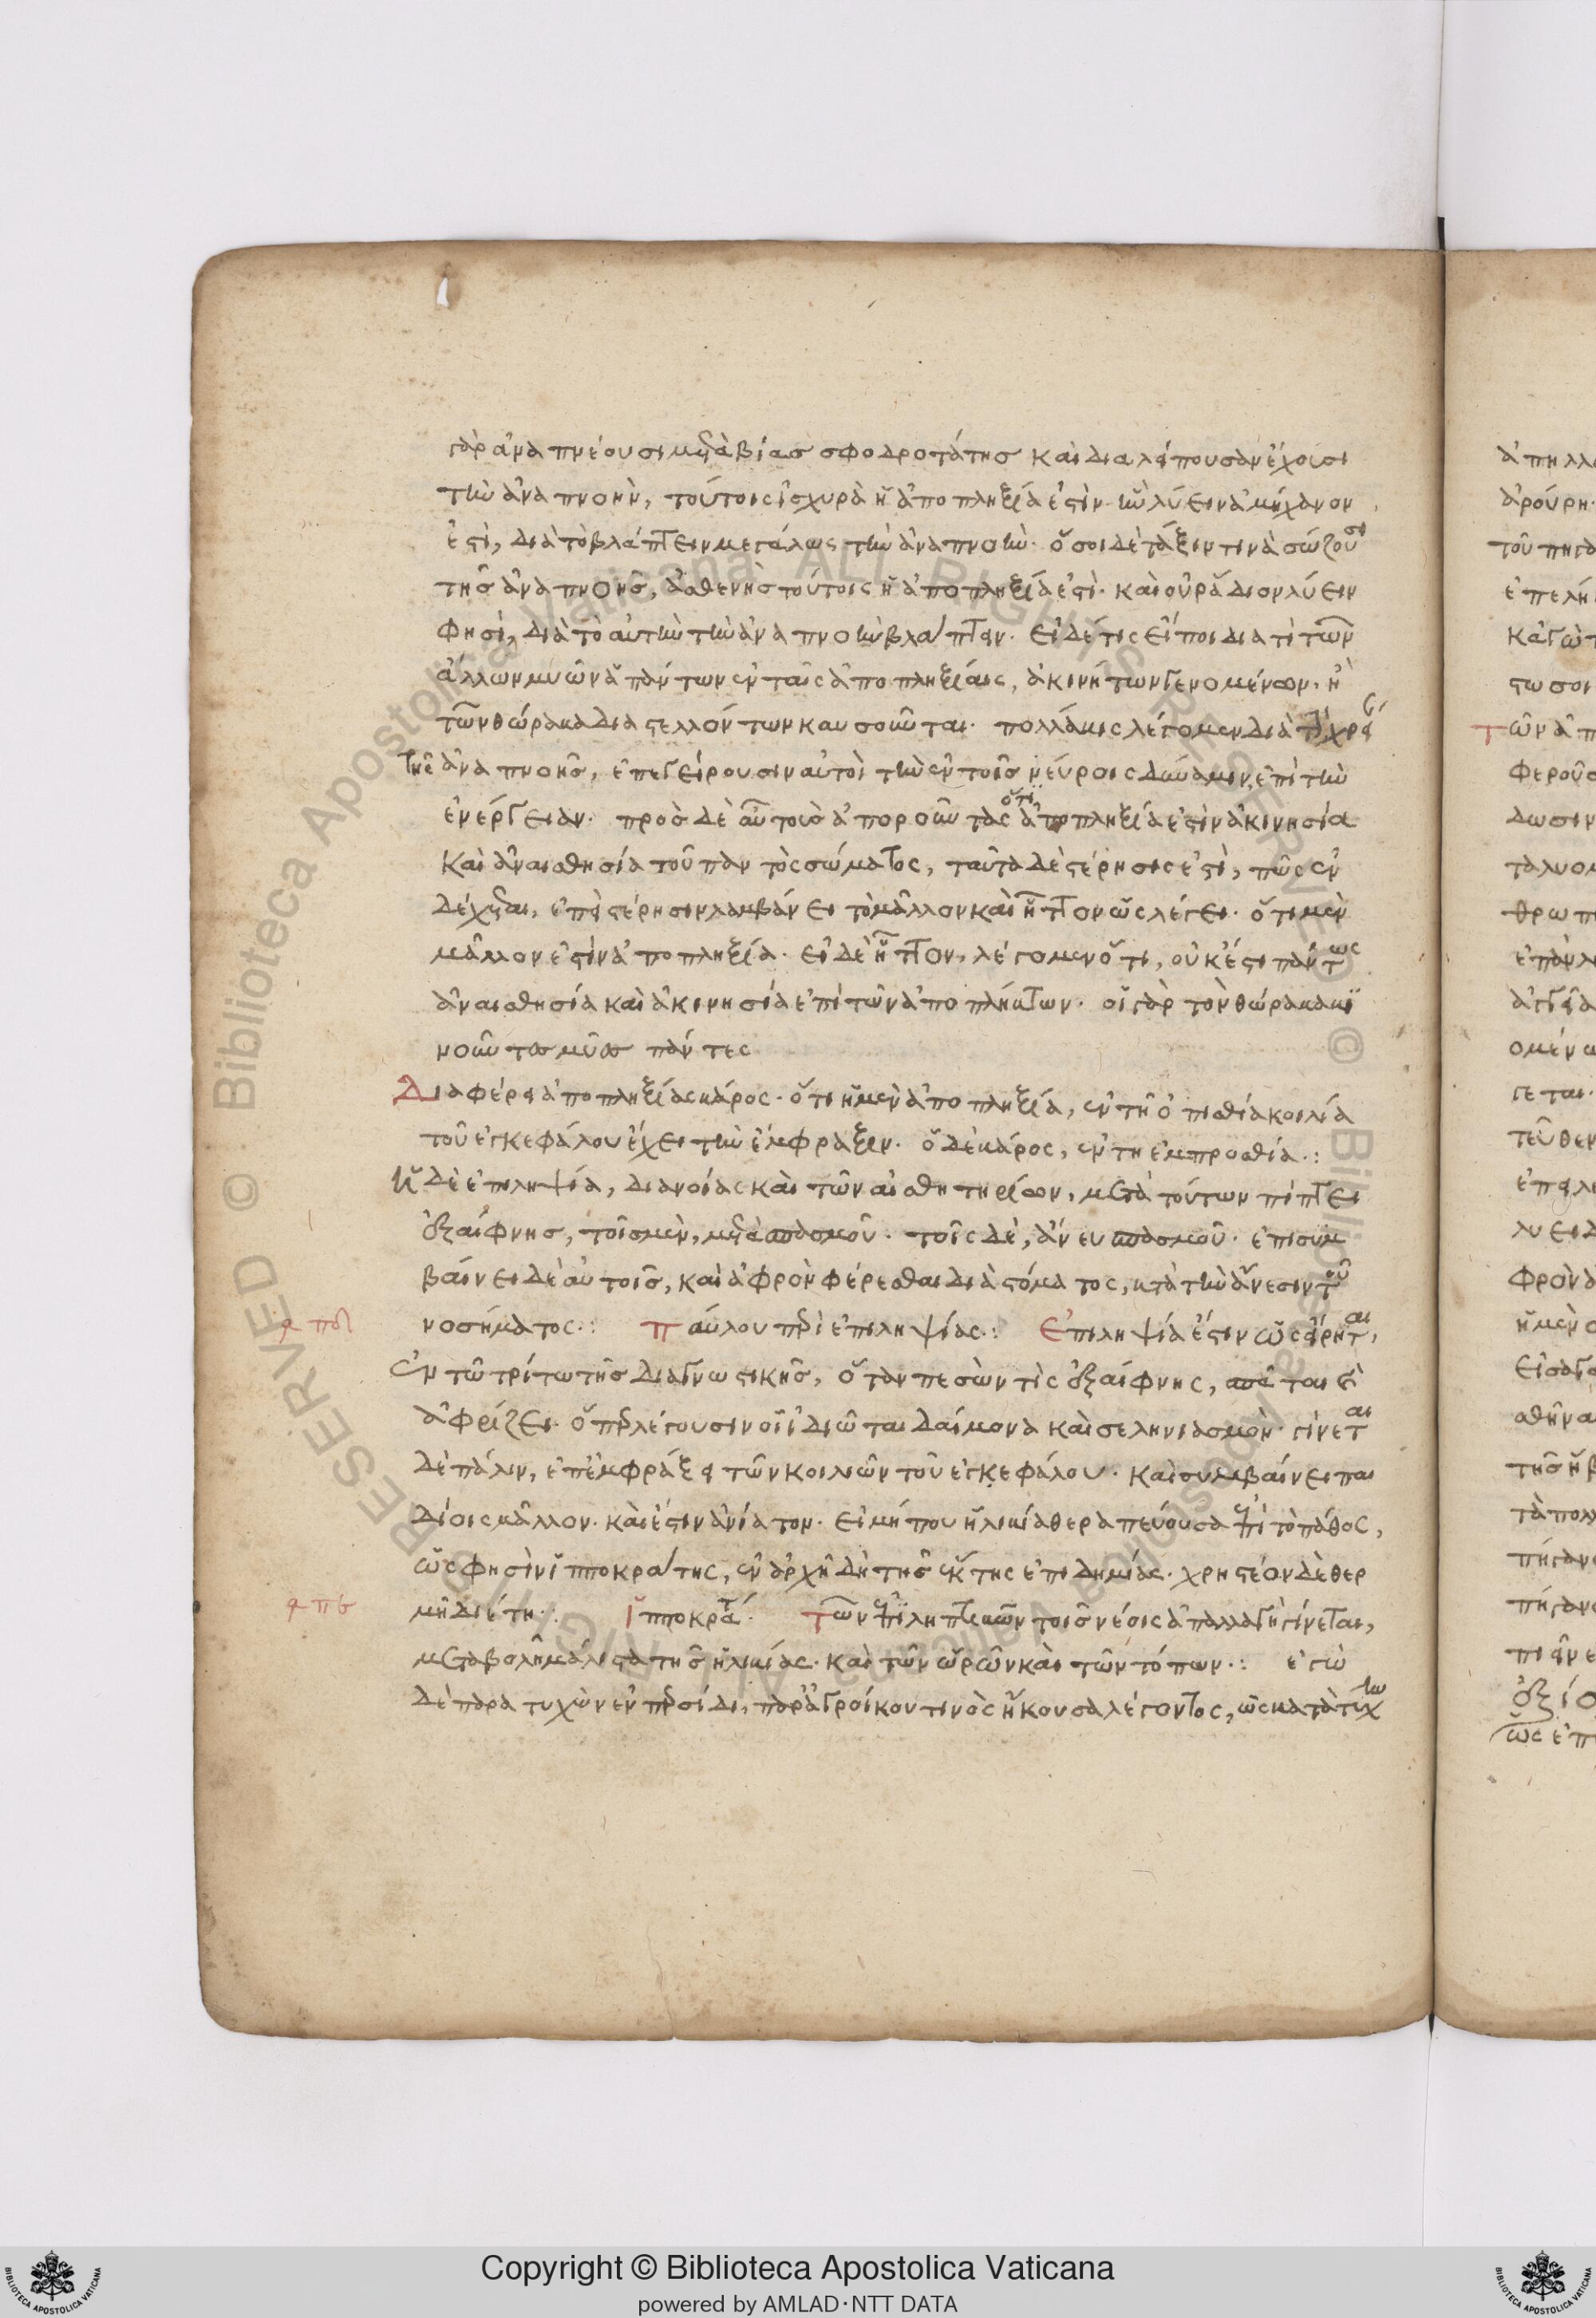 γὰρ ἀναπνέουσι μετὰ βίας σφοδροτάτης καὶ διαλείπουσαν ἔχουσι
τὴν ἀναπνοὴν, τούτοις ἰσχυρὰ ἡ ἀποπληξία ἐστὶν ἣν λύειν ἀμήχανον
ἐστὶ, διὰ τὸ βλάπτειν μεγάλως τὴν ἀναπνοήν· ὅσοι δὲ τάξιν τινὰ σώζουσι
τῆς ἀναπνοῆς, ἀσθενὴς τούτοις ἡ ἀποπληξία ἐστὶ· καὶ οὐ ῥάδιον λύειν
φησὶ, διὰ τὸ αὐτὴν τὴν ἀναπνοὴν βλάπτειν· εἰ δέ τις εἴποι διὰ τί τῶν
ἄλλων μυῶν ἁπάντων ἐν ταῖς ἀποπληξίαις, ἀκινήτων γενομένων, οἱ
τῶν θώρακα διαστελλόντων καὶ σοῦνται· πολλάκις λέγομεν διὰ τὴν χρεί
τῆς ἀναπνοῆς, ἐπεγείρουσιν αὐτοὶ τὴν ἐν τοῖς νεύροις δύναμιν, ἐπὶ τὴν
ἐνέργειαν· πρὸς δὲ αὐτοὺς ἀποροῦντας ὅτι ἀποπληξία ἐστὶν ἀκινησία
καὶ ἀναισθησία τοῦ παντὸς σώματος, ταῦτα δὲ στέρησις ἐστὶ, πῶς ἐν
δέχεται, ἐπεὶ στέρησιν λαμβάνει τὸ μᾶλλον καὶ ἧττον ὡς λέγει· ὅτι μὲν
μᾶλλον ἐστὶν ἀποπληξία· εἰ δὲ ἧττον, λέγομεν ὅτι, οὐκ ἔστι πάντως
ἀναισθησία καὶ ἀκινησία ἐπὶ τῶν ἀποπλήκτων· οἱ γὰρ τὸν θώρακα κι
νοῦντες μῦες πάντες
Διαφέρει ἀποπληξίας κάρος· ὅτι ἡ μὲν ἀποπληξία, ἐν τῇ ὀπισθία κοιλία
τοῦ ἐγκεφάλου ἔχει τὴν ἔμφραξιν· ὁ δὲ κάρος, ἐν τῇ ἐμπροσθία·:
ἡ δὲ ἐπιληψία, διανοίας καὶ τῶν αἰσθητηρίων, μετὰ τούτων πίπτει
ἐξαίφνης, τοῖς μὲν, μετὰ σπασμοῦ· τοῖς δὲ, ἄνευ σπασμοῦ· ἐπισυμ
βαίνει δὲ αὐτοῖς, καὶ ἀφρὸν φέρεσθαι διὰ στόματος, κατὰ τὴν ἄνεσιν τοῦ
νοσήματος·: Παύλου περὶ ἐπιληψίας·: Ἐπιληψία ἐστὶν ὡς εἴρηται,
ἐν τῷ τρίτω τῆς διαγνωστικῆς, ὅταν πεσὼν τὶς ἐξαίφνης, σπᾶται καὶ
ἀφρίζει· ὅπερ λέγουσιν οἱ ἰδιῶται δαίμονα καὶ σεληνιασμὸν· γίνεται
δὲ πάλιν, ἐπ' ἐμφράξει τῶν κοιλιῶν τοῦ ἐγκεφάλου· καὶ συμβαίνει παι
δίοις μᾶλλον· καὶ ἔστιν ἀνίατον· εἰ μή που ἡλικία θεραπεύουσα ἐπὶ τὸ πάθος,
ὥς φησὶν ἱπποκράτης, ἐν ἀρχῇ δὴ τῆς ἕκτης ἐπιδημίας· χρηστέον δὲ θερ
μῇ διαίτη·: Ἱπποκράτ· Τῶν ἐπιληπτικῶν τοῖς νέοις ἀπαλλαγὴ γίνεται,
μεταβολῇ μάλιστα τῆς ἡλικίας· καὶ τῶν ὡρῶν καὶ τῶν τόπων·: ἐγὼ
δὲ παρατυχὼν ἐν περσίδι, παρ' ἀγροίκου τινὸς ἤκουσα λέγοντος, ὡς κατὰ τύχην